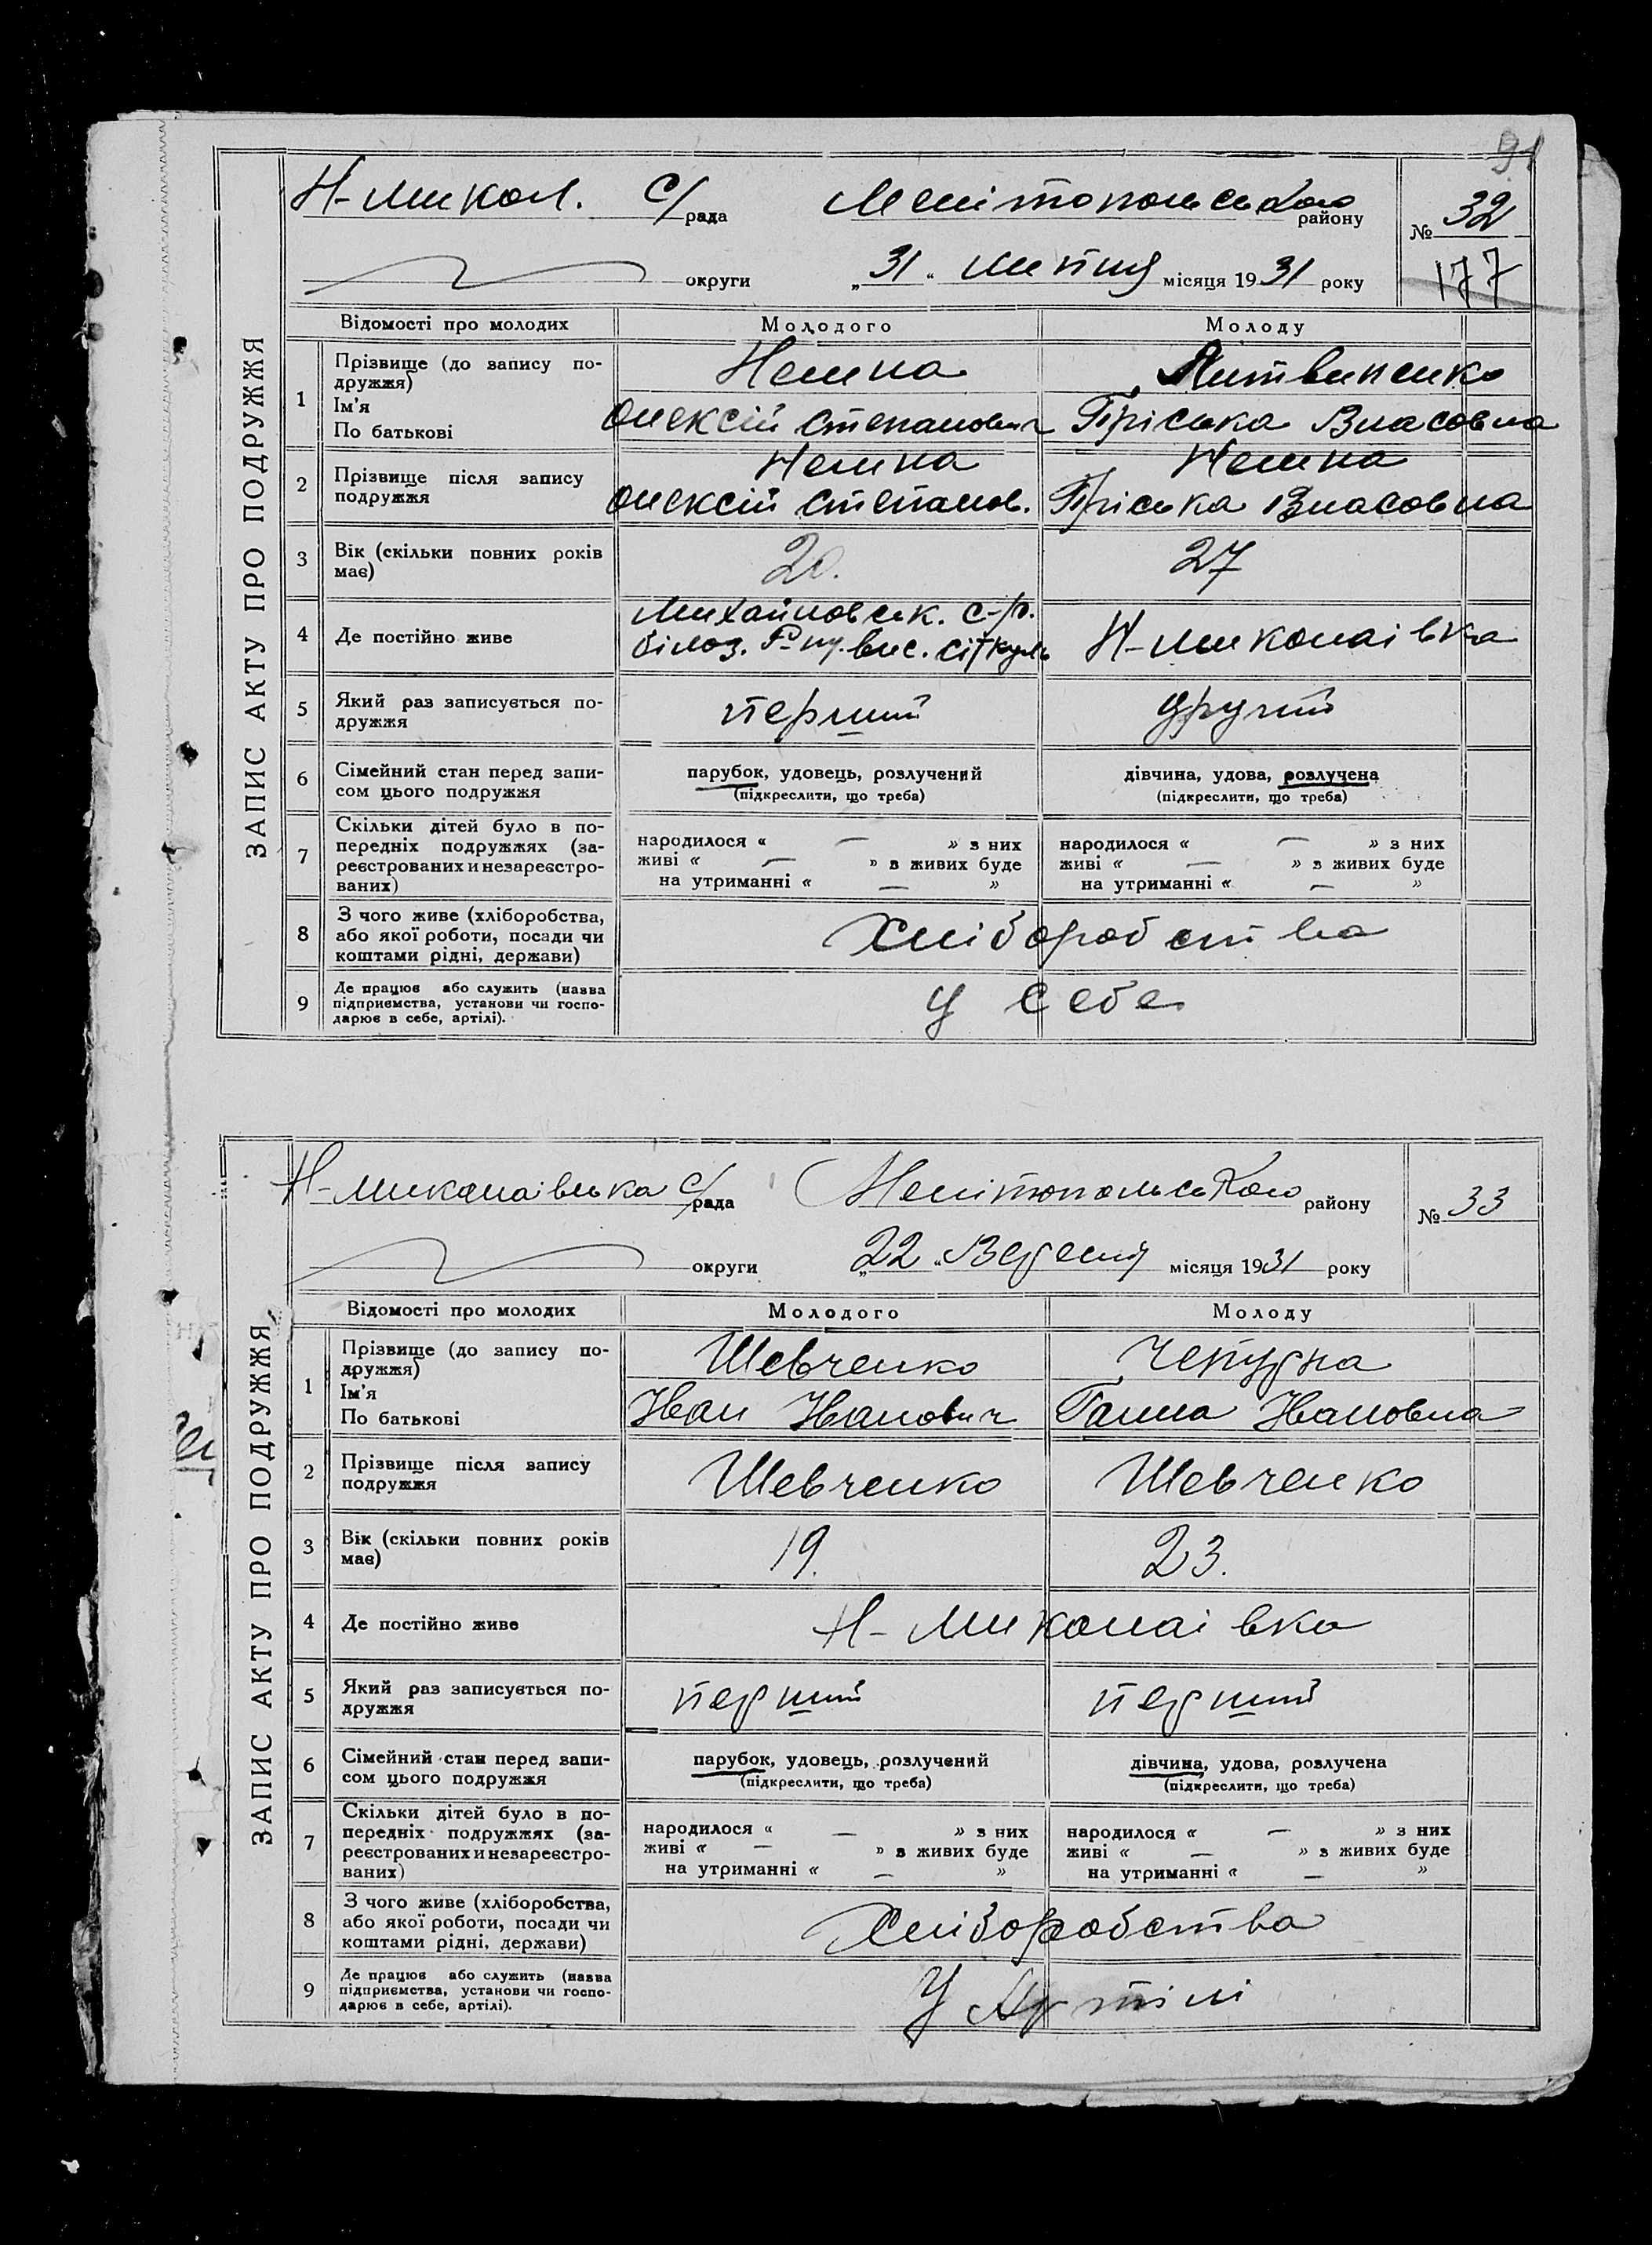 91
ЗАПИС АКТУ ПРО ПОДРУЖЖЯ
Н-Микол. С/рада Мелітопольського району № 32
округи „31“ липня місяця 1931 року 177
Відомості про молодих Молодого Молоду
1 Прізвище (до запису по-
дружжя)
Ім'я
По батькові
Нешна Литвиненко
Олексій Степанович Пріська Власовна
2 Прізвище після запису
подружжя
Нешна Нешна
Олексій Степанов. Пріська Власовна
3 Вік (скільки повних років
має)
20. 27
4 Де постійно живе
Михайловськ. с-р.
білоз. Р-ну. Н-Миколаівка
5 Який раз записується по-
дружжя
перший другий
6 Сімейний стан перед запи-
сом цього подружжя
парубок, удовець, розлучений дівчина, удова, розлучена
(підкреслити, що треба) (підкреслити, що треба)
7 Скільки дітей було в по-
передніх подружжях (за-
реєстрованих и незареєстро-
ваних)
народилося « — » з них народилося « — » з них
живі « — » в живих буде живі « — » в живих буде
на утриманні « — » на утриманні « — »
8 З чого живе (хліборобства,
або якої роботи, посади чи
коштами рідні, держави)
Хліборобства
9 Де працює або служить (назва
підприємства, установи чи госпо-
дарює в себе, артілі).
у себе
ЗАПИС АКТУ ПРО ПОДРУЖЖЯ
Н-Миколаівська С/рада Мелітопольського району № 33
округи „22“ Вересня місяця 1931 року
Відомості про молодих Молодого Молоду
1 Прізвище (до запису по-
дружжя)
Ім'я
По батькові
Шевченко Чепурна
Іван Іванович Ганна Івановна
2 Прізвище після запису
подружжя
Шевченко Шевченко
3 Вік (скільки повних років
має)
19. 23.
4 Де постійно живе
Н-Миколаівка
5 Який раз записується по-
дружжя
перший перший
6 Сімейний стан перед запи-
сом цього подружжя
парубок, удовець, розлучений дівчина, удова, розлучена
(підкреслити, що треба) (підкреслити, що треба)
7 Скільки дітей було в по-
передніх подружжях (за-
реєстрованих и незареєстро-
ваних)
народилося « — » з них народилося « — » з них
живі « — » в живих буде живі « — » в живих буде
на утриманні « — » на утриманні « — »
8 З чого живе (хліборобства,
або якої роботи, посади чи
коштами рідні, держави)
Хліборобства
9 Де працює або служить (назва
підприємства, установи чи госпо-
дарює в себе, артілі).
У Артілі